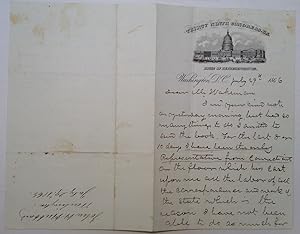 THIRTY NINTH CONGRESS U.S.
HOUSE OF REPRESENTATIVES.
Washington, D.C. July 29th 1866
Dear Mr Wakeman
I rec your kind note
on yesterday evening, but had so
many things to do I omitted to
send the book. For the last 8 or
10 days I have been the only
Representative from Connecticut
on the floor which has cast
upon me all the labor of all
the correspondence and work of
the State which is the
reason I have not been
able to do as much for
John H Hubbard
Washington
July 29 1866